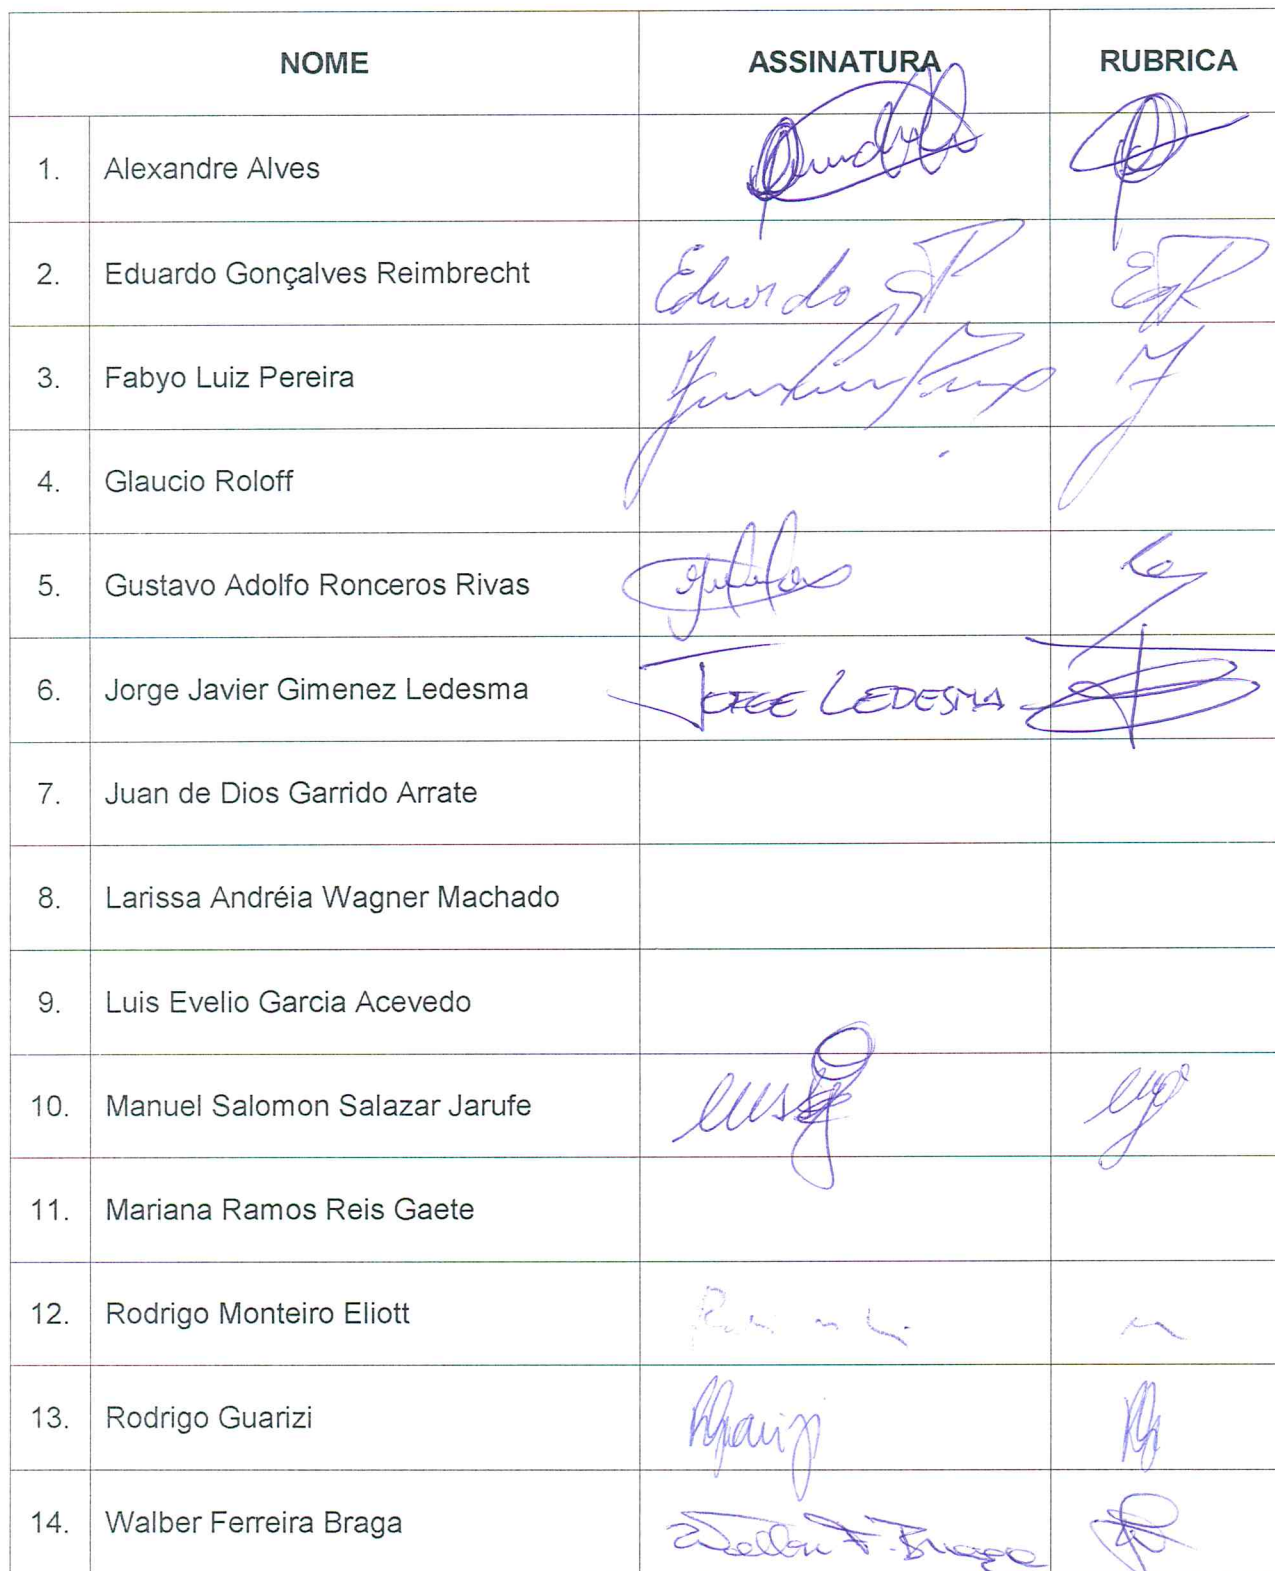 NOME ASSINATURA RUBRICA
1. Alexandre Alves
2. Eduardo Gonçalves Reimbrecht Eduardo
3. Fabyo Luiz Pereira
4. Glaucio Roloff
5. Gustavo Adolfo Ronceros Rivas
6. Jorge Javier Gimenez Ledesma JORGE LEDESMA
7. Juan de Dios Garrido Arrate
8. Larissa Andréia Wagner Machado
9. Luis Evelio Garcia Acevedo
10. Manuel Salomon Salazar Jarufe
11. Mariana Ramos Reis Gaete
12. Rodrigo Monteiro Eliott
13. Rodrigo Guarizi
14. Walber Ferreira Braga Walber F. Braga